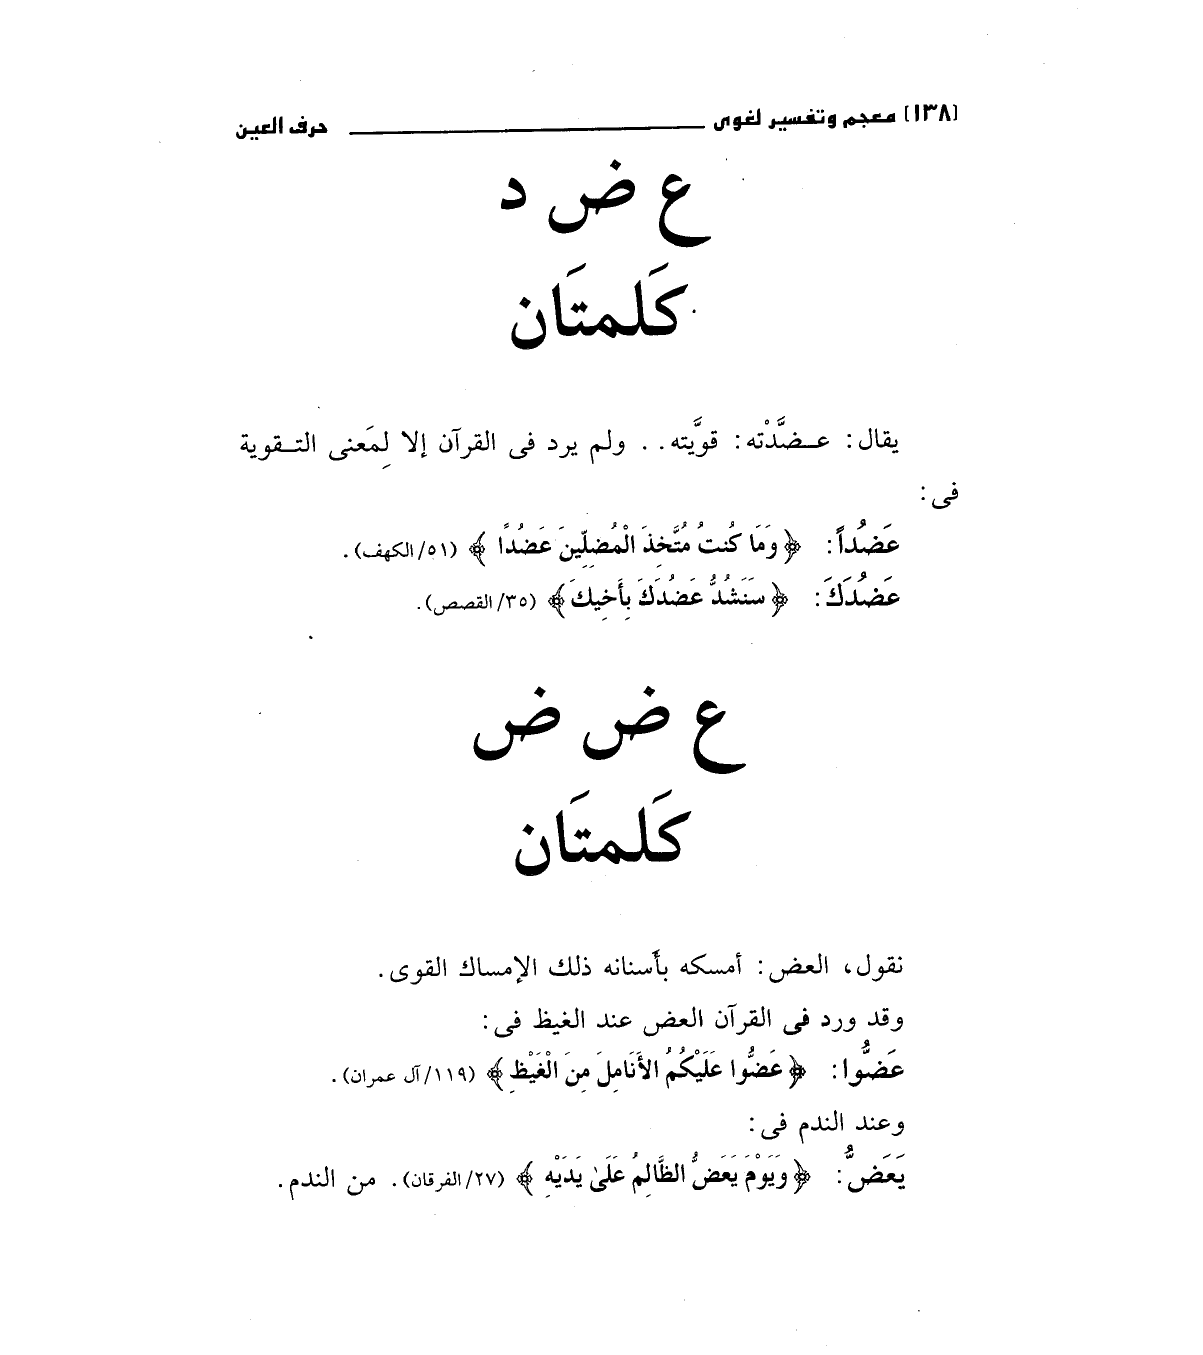 [١٣٨] معجم وتفسير لغوى حرف العين
ع ض د
كَلمتَان
يقال: عـضَّدْته: قويَّته.. ولم يرد فى القرآن إلا لِمَعنى التـقوية
فى:
عَضُداً: ﴿وَمَا كُنتُ مُتَّخِذَ الْمُضِلِّينَ عَضُدًا﴾ (٥١/الكهف).
عَضُدَكَ: ﴿سَنَشُدُّ عَضُدَكَ بِأَخِيكَ﴾ (٣٥/القصص).
ع ض ض
كَلمتَان
نقول، العض: أمسكه بأسنانه ذلك الإمساك القوى.
وقد ورد فى القرآن العض عند الغيظ فى:
عَضُّوا: ﴿عَضُّوا عَلَيْكُمُ الأَنَامِلَ مِنَ الْغَيْظِ﴾ (١١٩/آل عمران).
وعند الندم فى:
يَعَضُّ: ﴿وَيَوْمَ يَعَضُّ الظَّالِمُ عَلَىٰ يَدَيْهِ﴾ (٢٧/الفرقان). من الندم.